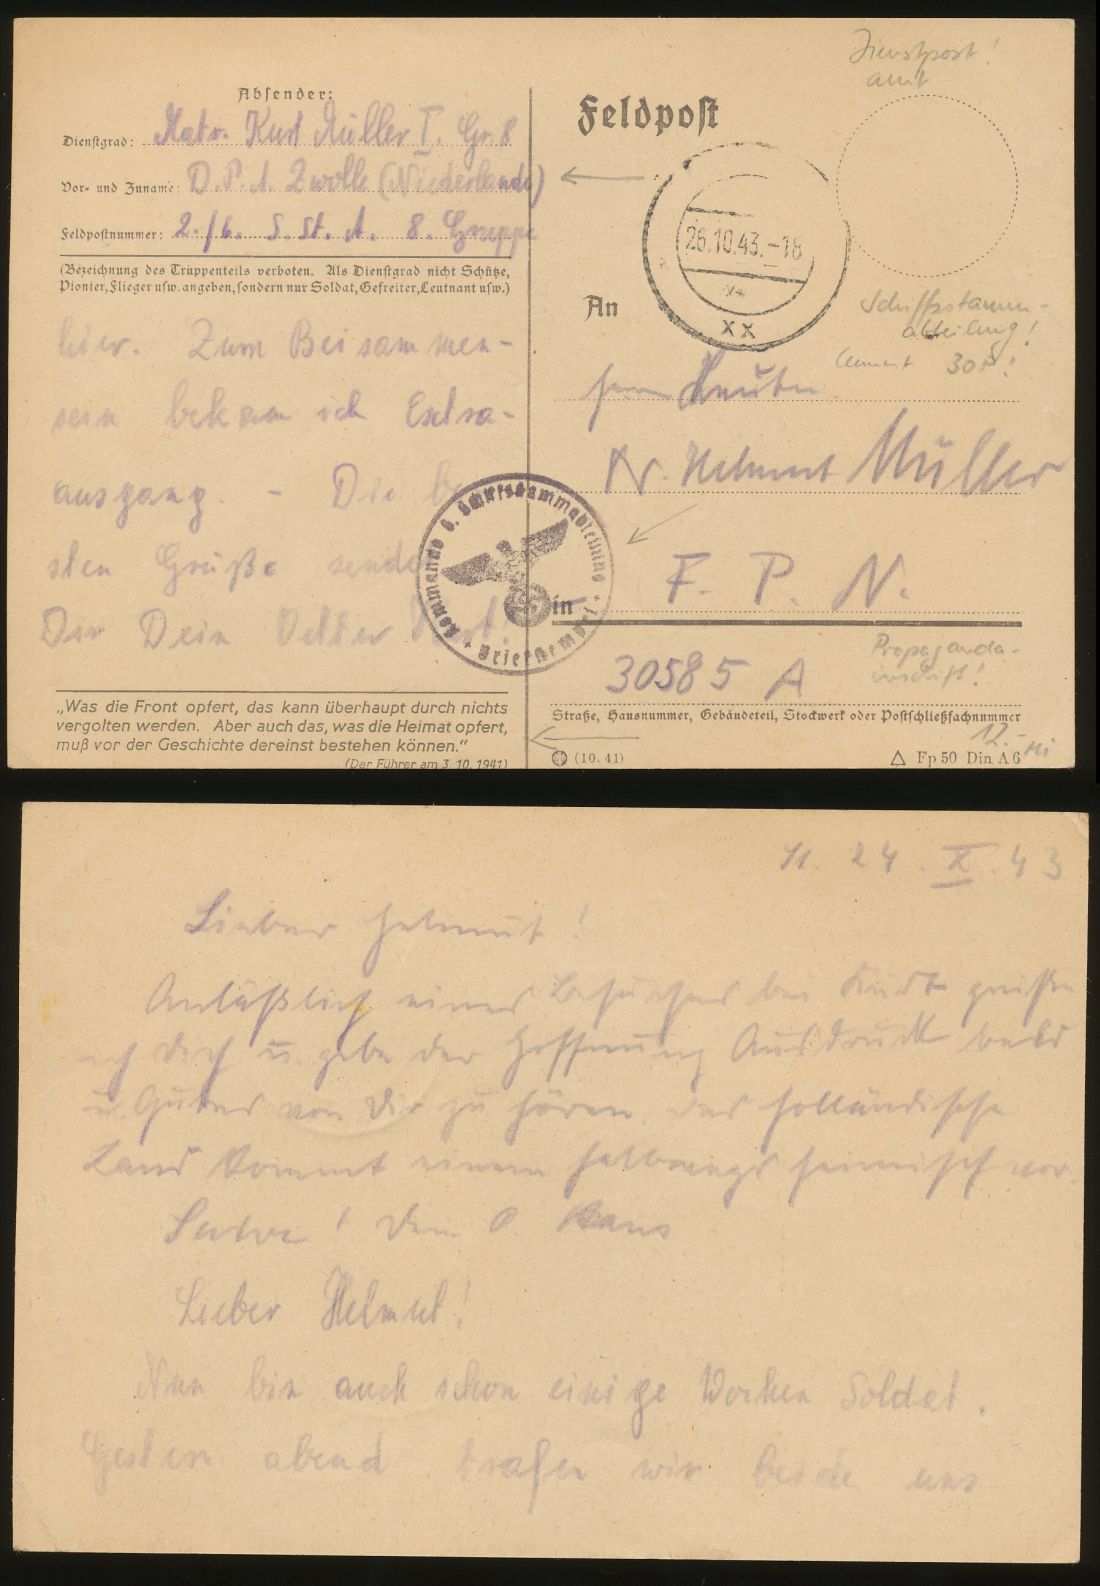 Dienstpost!
amt
Absender:
Feldpost
Dienstgrad: Matr. Kurt Müller I. Gr. 8
Vor- und Zuname: D. P. A. Zwolle (Niederlande)
Feldpostnummer: 2./6. S. St. A. 8. Gruppe
(Bezeichnung des Truppenteils verboten. Als Dienstgrad nicht Schütze,
Pionier, Flieger usw. angeben, sondern nur Soldat, Gefreiter, Leutnant usw.)
26.10.43.-18
XX
An
Schiffsstamm-
abteilung!
30,-!
Herrn
Dr. Helmut Müller
F. P. N.
in
30585 A
Propaganda-
inschrift!
Straße, Hausnummer, Gebäudeteil, Stockwerk oder Postschließfachnummer
12.-
(10. 41)
Fp 50 Din A 6
hier. Zum Beisammen-
sein bekam ich Extra-
ausgang. - Die be
sten Grüße sendet
Dir Dein Vetter Kurt.
Kommando 6. Schiffsstammabteilung
Briefstempel
„Was die Front opfert, das kann überhaupt durch nichts
vergolten werden. Aber auch das, was die Heimat opfert,
muß vor der Geschichte dereinst bestehen können.“
(Der Führer am 3. 10. 1941)
24. X. 43
Lieber Helmut!
Anläßlich eines Besuches bei Kurt grüße
ich Dich u. gebe der Hoffnung Ausdruck bald
u. Gutes von Dir zu hören. Das holländische
Land kommt einem halbwegs heimisch vor.
Salve! Dein O. Hans
Lieber Helmut!
Nun bin auch schon einige Wochen Soldat.
Gestern abend trafen wir beide uns